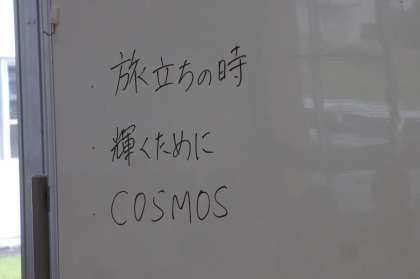 ・旅立ちの時
・輝くために
・COSMOS